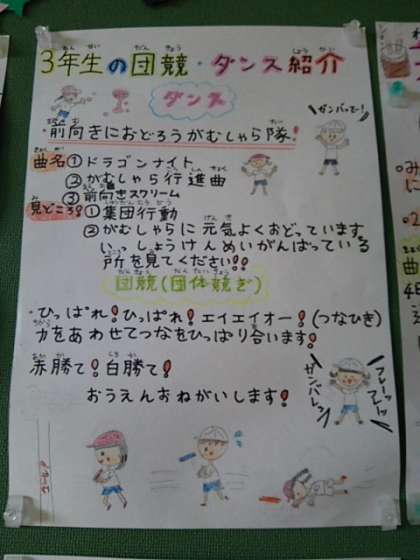 3年生の団競・ダンス紹介
ダンス
ガンバッて!
前向きにおどろうがむしゃら隊!
曲名①ドラゴンナイト
②がむしゃら行進曲
③前向きスクリーム
見どころ
①集団行動
②がむしゃらに元気よくおどっています
いっしょうけんめいがんばっている
所を見てください!!
団競(団体競ぎ)
・ひっぱれ!ひっぱれ!エイエイオー!(つなひき)
力をあわせてつなをひっぱり合います!
赤勝て!白勝て!
おうえんおねがいします!
ガンバレっ
フレーッ
フレーッ